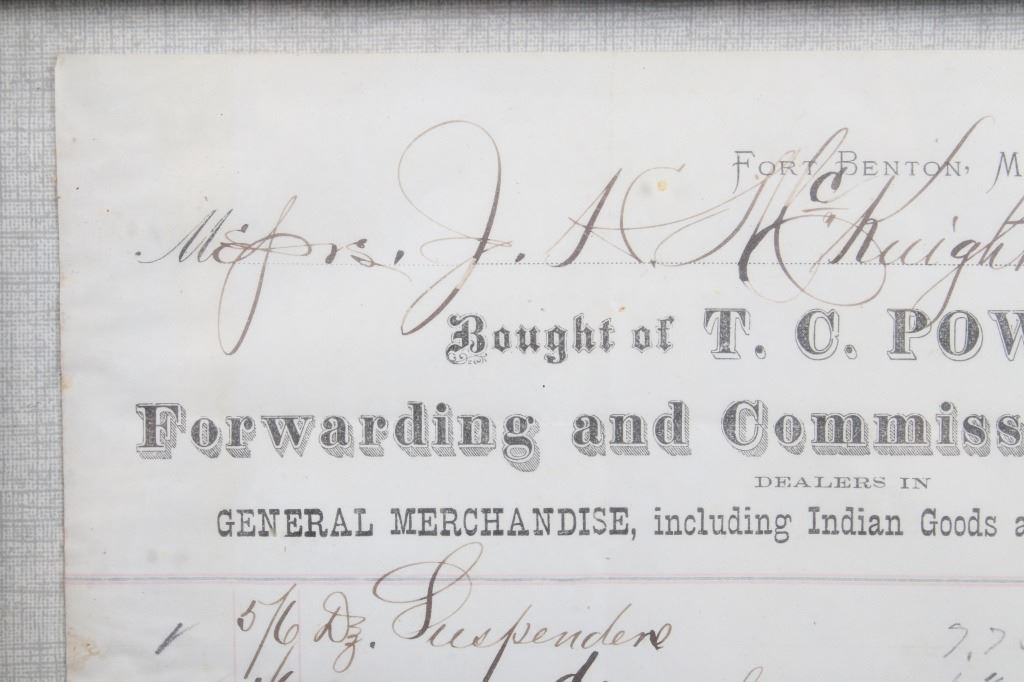 Fort Benton, M
Messrs. J. A. McKnight
Bought of T. C. POW
Forwarding and Commiss
DEALERS IN
GENERAL MERCHANDISE, including Indian Goods a
5/6 Dz. Suspenders 7.7